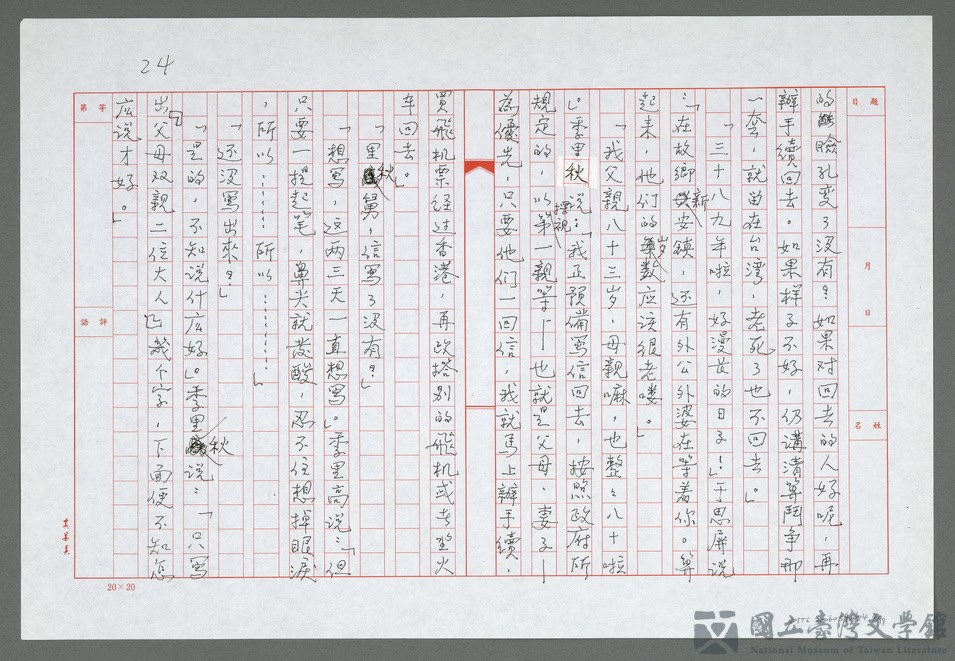 24
題目
月
日
姓名
的臉孔變了沒有?如果对回去的人好呢,再
辦手續回去。如果样子不好,仍講清算鬥争那
一套,就留在台湾,老死了也不回去。」
「三十八九年啦,好漫長的日子!」于思屏说
:「在故鄉新安鎮,还有外公外婆在等着你。算
起来,他们的岁数应该很老喽。」
「我父親八十三岁,母親嘛,也整整八十啦
。」季里秋说:「我正預備写信回去,按照政府所
規定的,以探視第一親等——也就是父母、妻子——
為優先,只要他们一回信,我就馬上辦手續,
買飛机票经过香港,再改搭別的飛机或者坐火
车回去。」
「里秋舅,信写了沒有?」
「想写,这两三天一直想写。」季里高说:「但
只要一提起笔,鼻尖就發酸,忍不住想掉眼淚
,所以…………所以…………」
「还沒写出來?」
「是的,不知说什広好。」季里秋说:「只写
出『父母双親二位大人』幾个字,下面便不知怎
広说才好。」
等第
評語
20×20
國立臺灣文学館
National Museum of Taiwan Literature